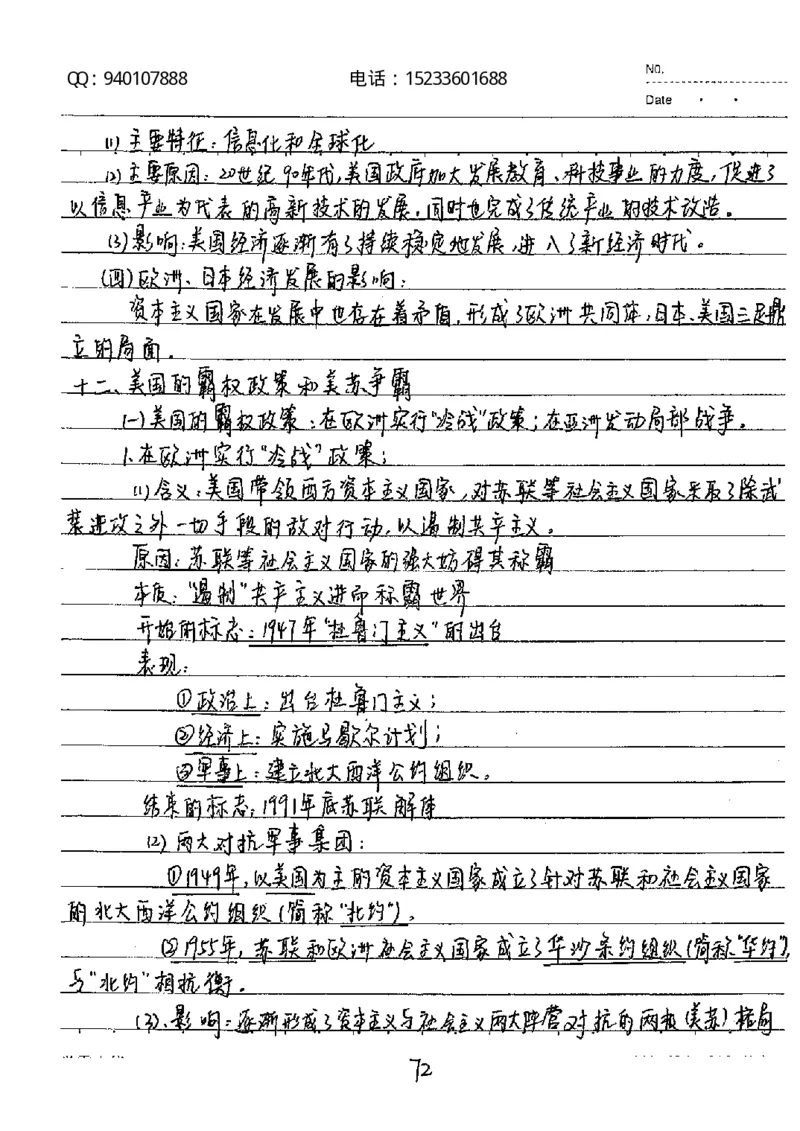 QQ：940107888 电话：15233601688 No.
Date
(1)主要特征：信息化和全球化
(2)主要原因：20世纪90年代,美国政府加大发展教育、科技事业的力度,促进了
以信息产业为代表的高新技术的发展,同时也完成了传统产业的技术改造。
(3)影响:美国经济逐渐有了持续稳定地发展,进入了新经济时代。
(四)欧洲、日本经济发展的影响：
资本主义国家在发展中也存在着矛盾,形成了欧洲共同体,日本、美国三足鼎
立的局面。
十二、美国的霸权政策和美苏争霸
(一)美国的霸权政策：在欧洲实行“冷战”政策；在亚洲发动局部战争。
1.在欧洲实行“冷战”政策；
(1)含义：美国带领西方资本主义国家,对苏联等社会主义国家采取了除武
装进攻之外一切手段的敌对行动,以遏制共产主义。
原因：苏联等社会主义国家的强大妨碍其称霸
本质：“遏制”共产主义进而称霸世界
开始的标志：1947年“杜鲁门主义”的出台
表现：
①政治上：出台杜鲁门主义；
②经济上：实施马歇尔计划；
③军事上：建立北大西洋公约组织。
结束的标志：1991年底苏联解体
(2)两大对抗军事集团：
①1949年,以美国为主的资本主义国家成立了针对苏联和社会主义国家
的北大西洋公约组织(简称“北约”)。
②1955年,苏联和欧洲社会主义国家成立了华沙条约组织(简称“华约”),
与“北约”相抗衡。
(3)、影响：逐渐形成了资本主义与社会主义两大阵营对抗的两极(美苏)格局
72